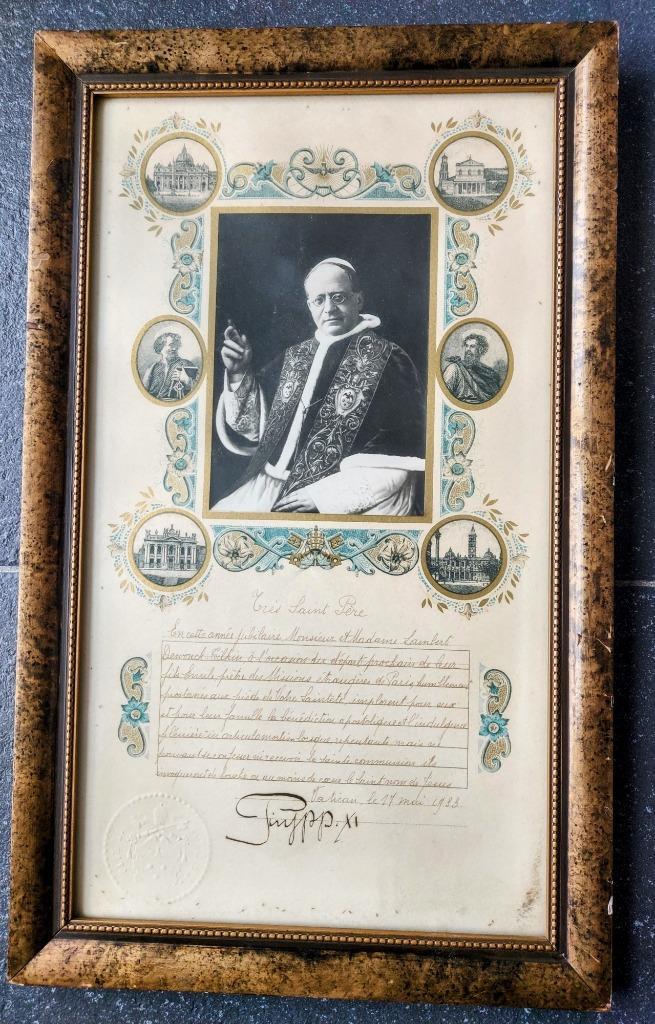 Très Saint Père
En cette année jubilaire Monsieur et Madame Lambert
à l'occasion du départ prochain de leur
fils prêtre des Missions étrangères de Paris, humblement
prosternés aux pieds de Votre Sainteté, implorent pour eux
et pour leur famille la bénédiction apostolique et l'indulgence
plénière in articulo mortis lorsque repentants mais ne
pouvant se confesser ni recevoir la sainte communion ils
invoqueront de bouche ou au moins de cœur le Saint nom de Jésus
Vatican, le 17 mai 1933
Pius pp. XI